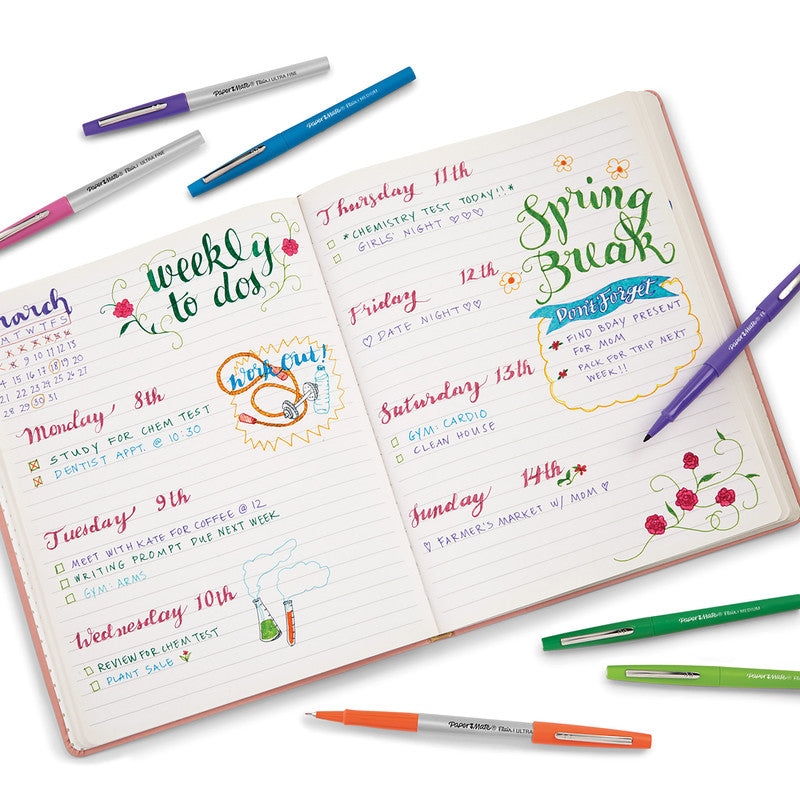 weekly
to dos
M T W T F S
9 10 11 12 13
21 22 23 24 25 26 27
28 29 30 31
Monday 8th
STUDY FOR CHEM TEST
DENTIST APPT. @ 10:30
Work Out!
Tuesday 9th
MEET WITH KATE FOR COFFEE @ 12
WRITING PROMPT DUE NEXT WEEK
GYM: ARMS
Wednesday 10th
REVIEW FOR CHEM TEST
PLANT SALE
Thursday 11th
*CHEMISTRY TEST TODAY!!*
GIRLS' NIGHT ♡♡♡
Friday 12th
♡ DATE NIGHT ♡♡
Saturday 13th
GYM: CARDIO
CLEAN HOUSE
Sunday 14th
♡ FARMER'S MARKET W/ MOM ♡
Spring
Break
Don't Forget
FIND BDAY PRESENT
FOR MOM
PACK FOR TRIP NEXT
WEEK!!
Paper Mate® Flair. ULTRA FINE
Paper Mate® Flair. MEDIUM
Paper Mate® Flair. ULTRA FINE
Paper Mate® Flair
Paper Mate® Flair. MEDIUM
Paper Mate® Flair
Paper Mate® Flair. ULTRA